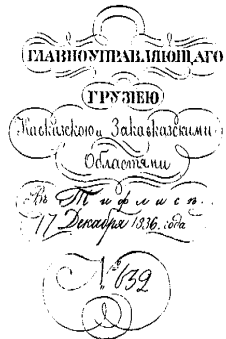 ГЛАВНОУПРАВЛЯЮЩАГО
ГРУЗІЕЮ
Каспійскою и Закавказскими
Областями
Въ Тифлисѣ.
17 Декабря 1836 года
№ 632